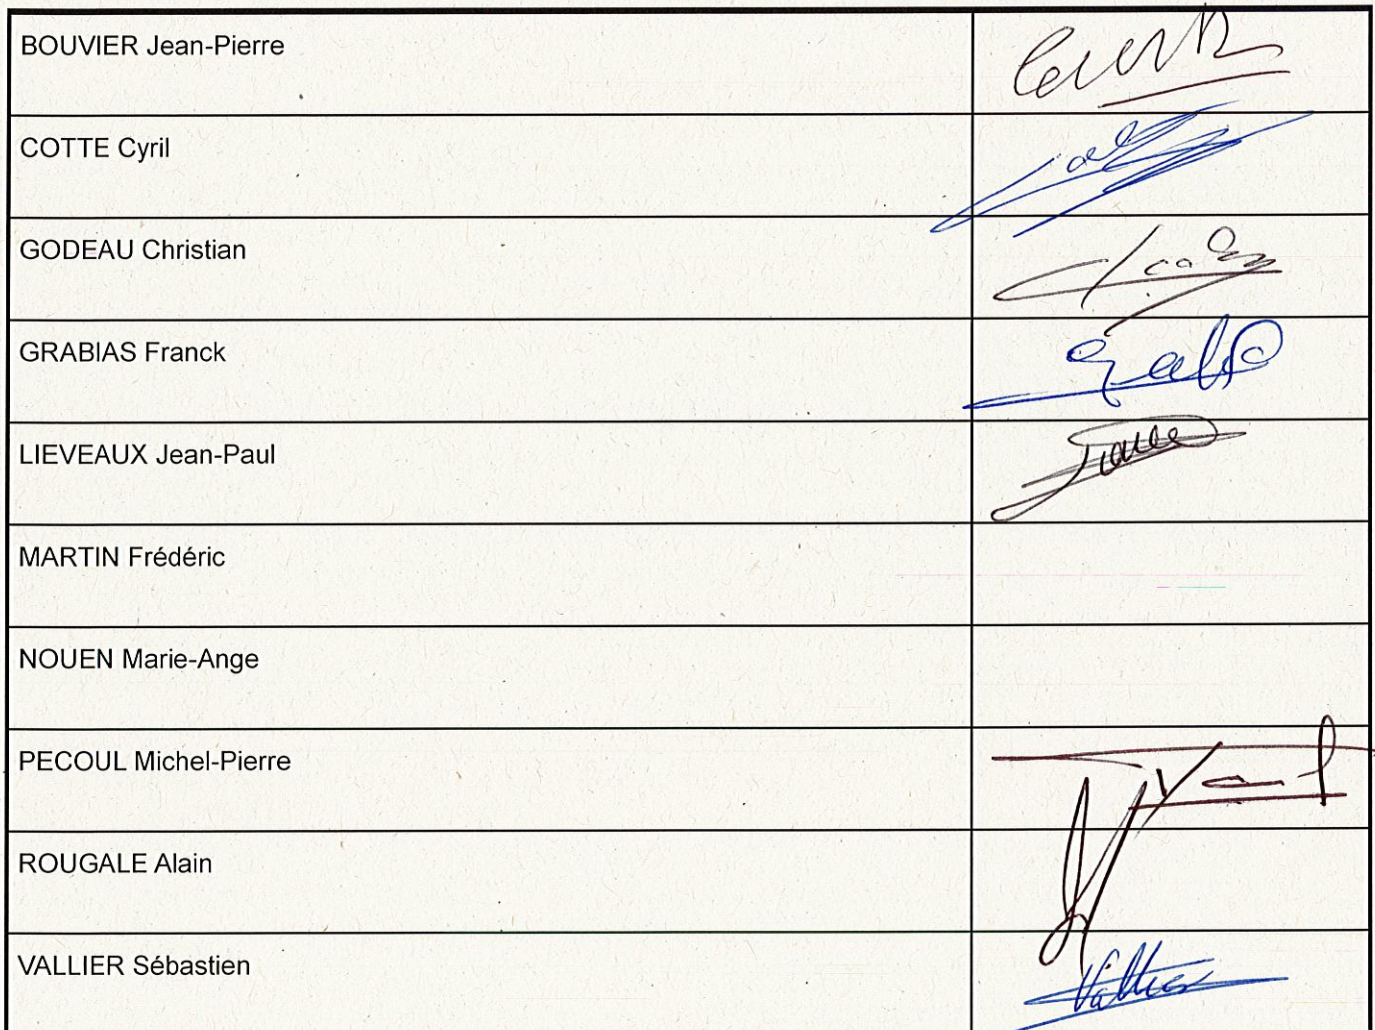 BOUVIER Jean-Pierre
COTTE Cyril
GODEAU Christian
GRABIAS Franck
LIEVEAUX Jean-Paul
MARTIN Frédéric
NOUEN Marie-Ange
PECOUL Michel-Pierre
ROUGALE Alain
VALLIER Sébastien
Vallier